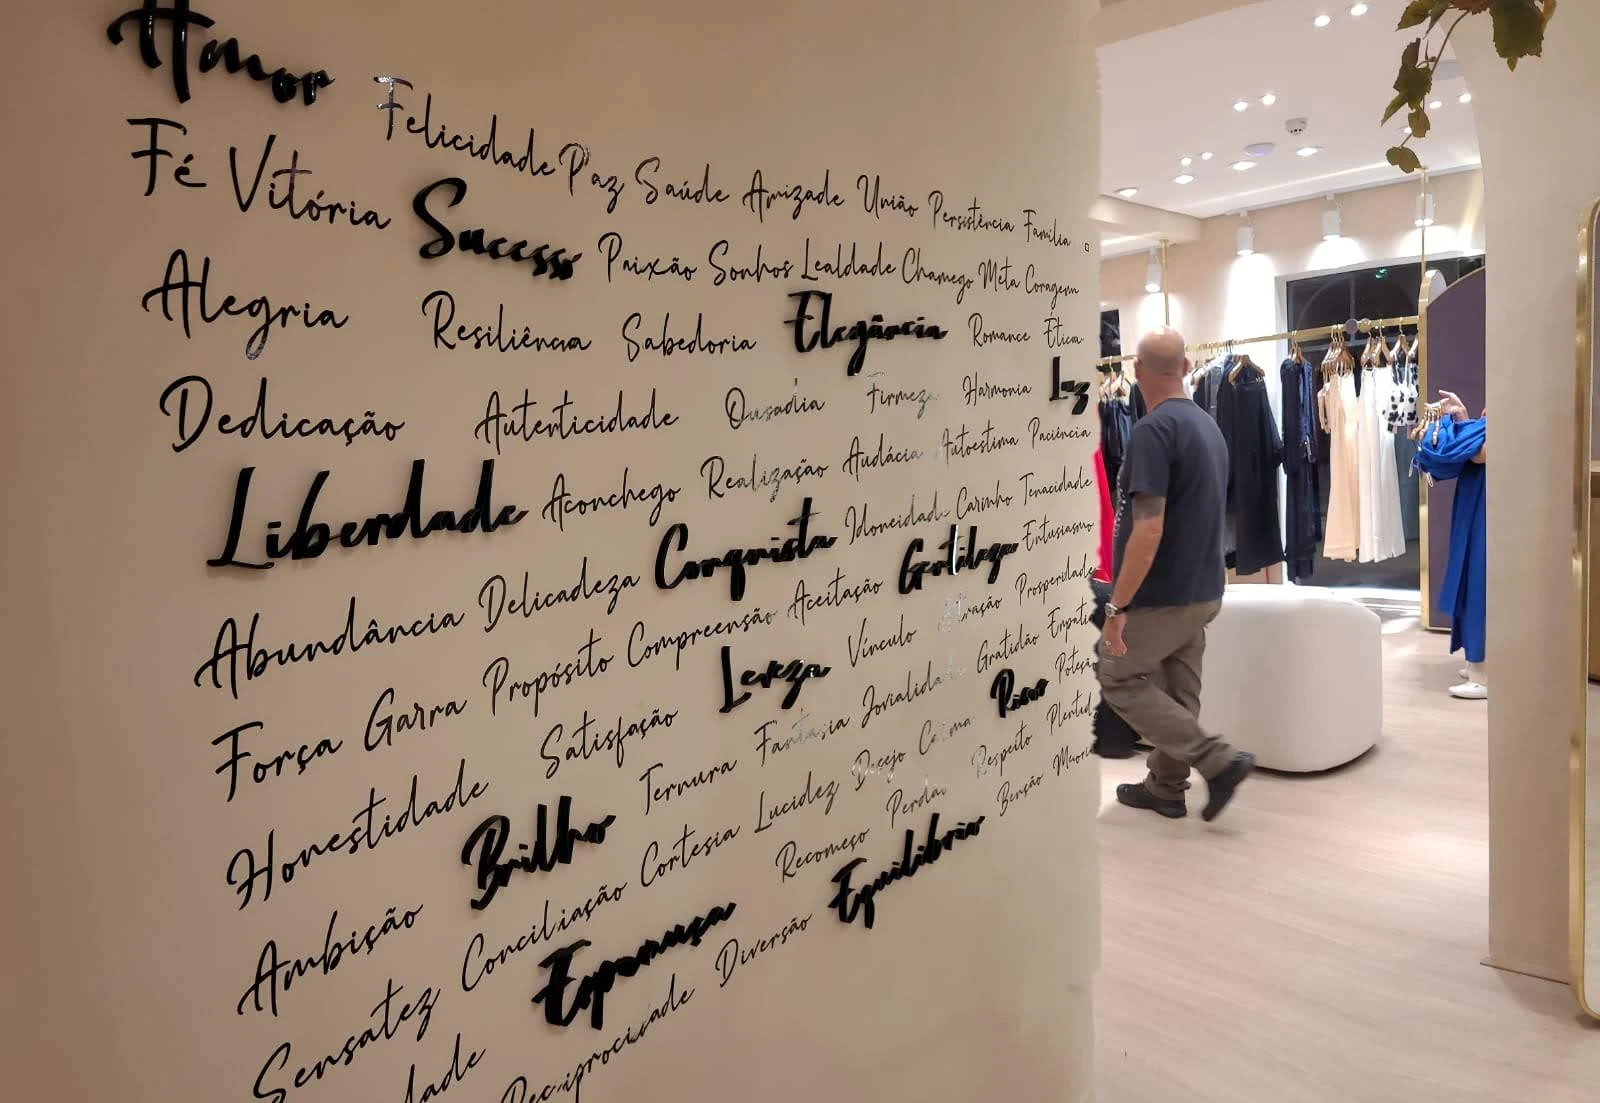 Amor Felicidade Paz Saúde Amizade União Persistência Família
Fé Vitória Sucesso Paixão Sonhos Lealdade Chamego Meta Coragem
Alegria Resiliência Sabedoria Elegância Romance Ética
Dedicação Autenticidade Ousadia Firmeza Harmonia Luz
Liberdade Aconchego Realização Audácia Autoestima Paciência
Abundância Delicadeza Conquista Idoneidade Carinho Tenacidade
Força Garra Propósito Compreensão Aceitação Gentileza Entusiasmo
Honestidade Satisfação Leveza Vínculo Atração Prosperidade
Ambição Brilho Ternura Fantasia Jovialidade Gratidão Empatia
Sensatez Conciliação Cortesia Lucidez Desejo Calma Riso
dade Esperança Recomeço Perdão Respeito
Reciprocidade Diversão Equilíbrio Benção